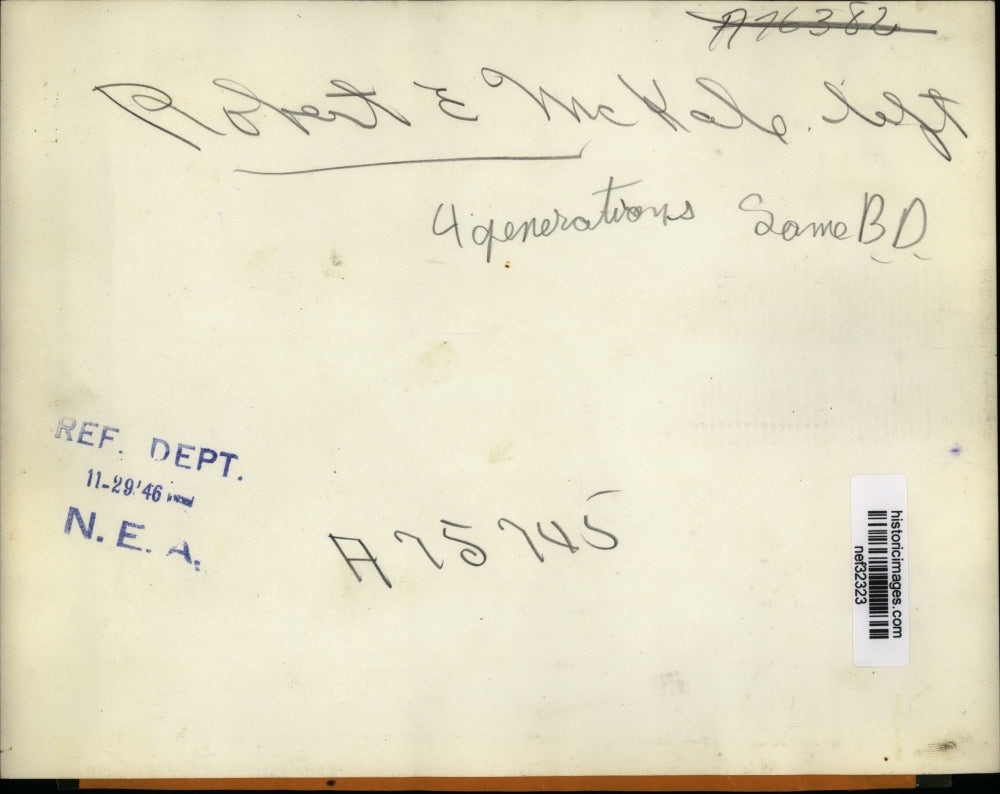 A76382
Robert E McKale left
4 generations Same B.D.
REF. DEPT.
11-29'46
N. E. A.
A75745
historicimages.com
nef32323